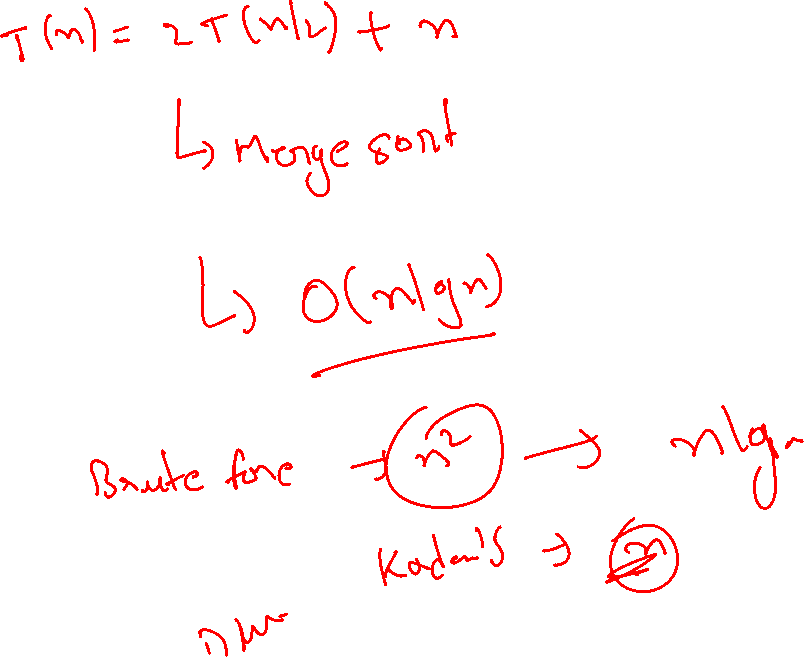 T(n) = 2T(n/2) + n
↳ Merge sort
↳ O(n lg n)
Brute force → n² → n lg n
Kadane's → n